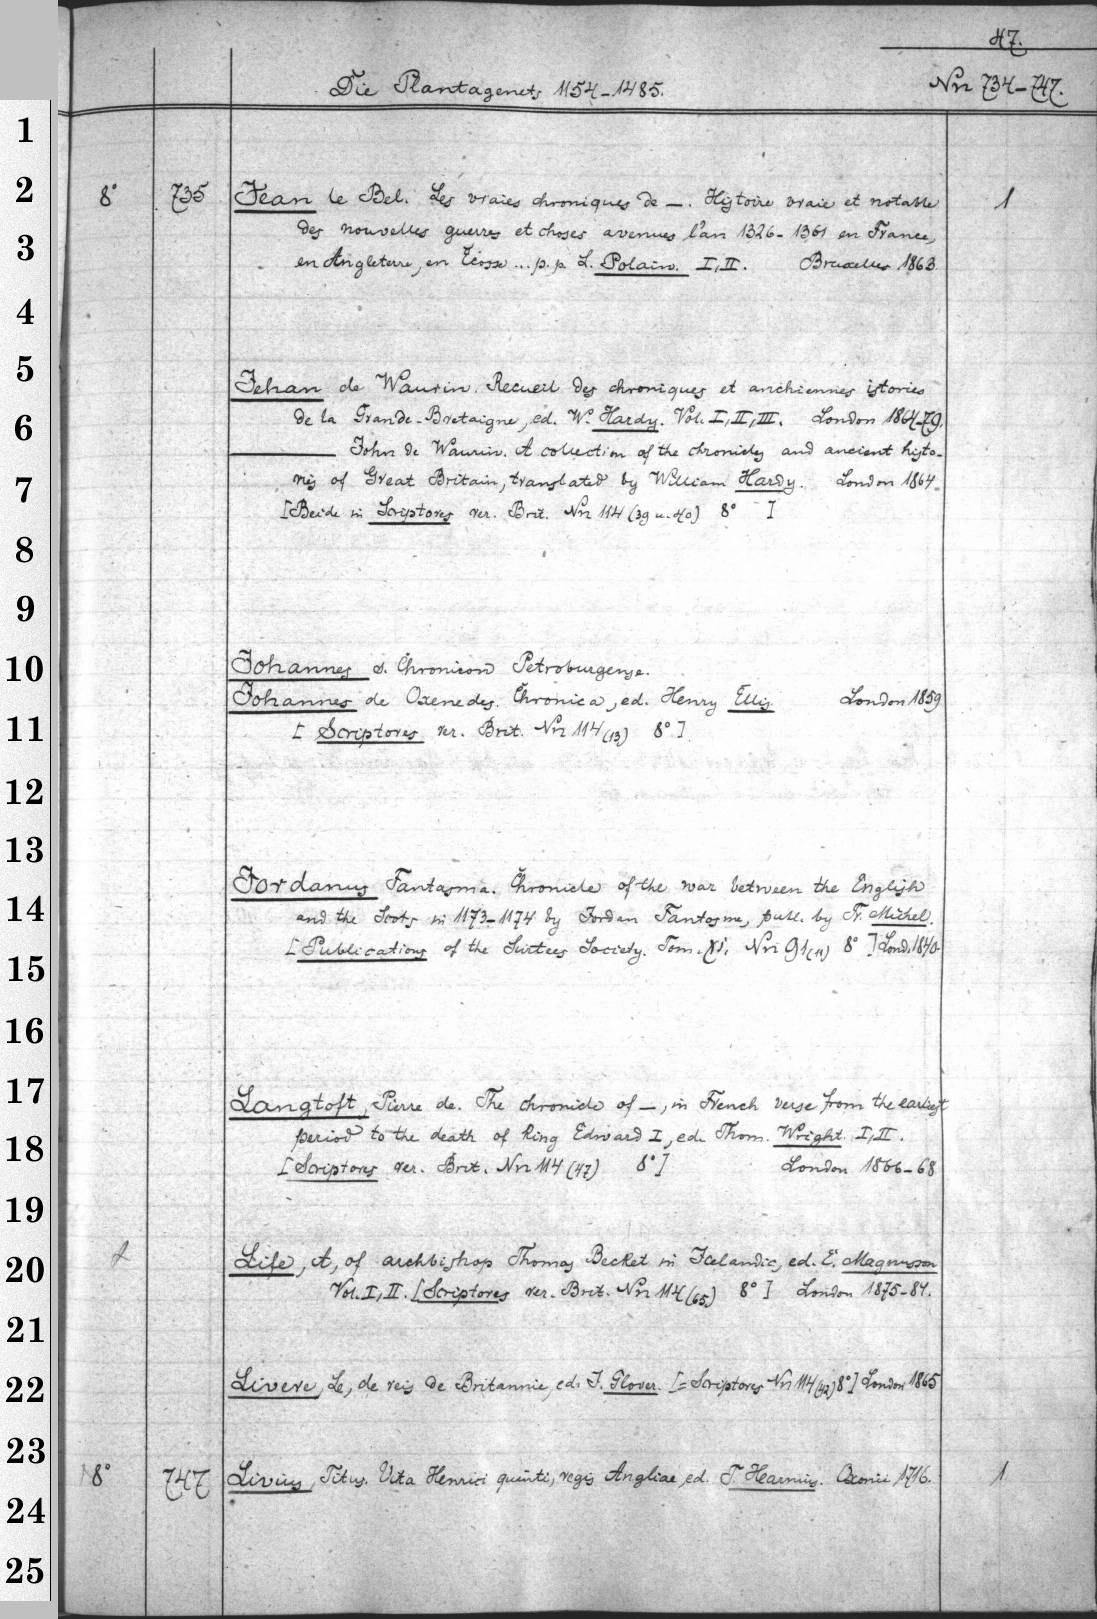 47.
Die Plantagenets 1154-1485.
Nn 734-747.
1
2
3
4
5
6
7
8
9
10
11
12
13
14
15
16
17
18
19
20
21
22
23
24
25
8° 735 Jean le Bel. Les vraies chroniques de —. Histoire vraie et notable 1
des nouvelles guerres et choses avenues l'an 1326-1361 en France,
en Angleterre, en Ecosse ... p. p. L. Polain. I, II. Bruxelles 1863.
Jehan de Waurin. Recueil des chroniques et anchiennes istories
de la Grande-Bretaigne, ed. W. Hardy. Vol. I, II, III. London 1864-79.
——— John de Waurin. A collection of the chronicles and ancient histo-
ries of Great Britain, translated by William Hardy. London 1864.
[Beide in Scriptores rer. Brit. Nn 114 (39 u. 40) 8° ]
Johannes s. Chronicon Petroburgense.
Johannes de Oxenedes. Chronica, ed. Henry Ellis. London 1859
[ Scriptores rer. Brit. Nn 114 (13) 8° ].
Jordanus Fantasma. Chronicle of the war between the English
and the Scots in 1173-1174 by Jordan Fantosme, publ. by Fr. Michel.
[Publications of the Surtees Society. Tom. XI. Nn 91 (11) 8° ] Lond. 1840.
Langtoft, Pierre de. The chronicle of —, in French verse from the earliest
period to the death of King Edward I, ed. Thom. Wright. I, II.
[Scriptores rer. Brit. Nn 114 (47) 8° ] London 1866-68
Life, A, of archbishop Thomas Becket in Icelandic, ed. E. Magnusson
Vol. I, II. [Scriptores rer. Brit. Nn 114 (65) 8° ] London 1875-84.
Livere, Le, de reis de Britannie, ed. J. Glover. [= Scriptores Nn 114 (42) 8°] London 1865
8° 747 Livius, Titus. Vita Henrici quinti, regis Angliae, ed. T. Hearnius. Oxonii 1716. 1